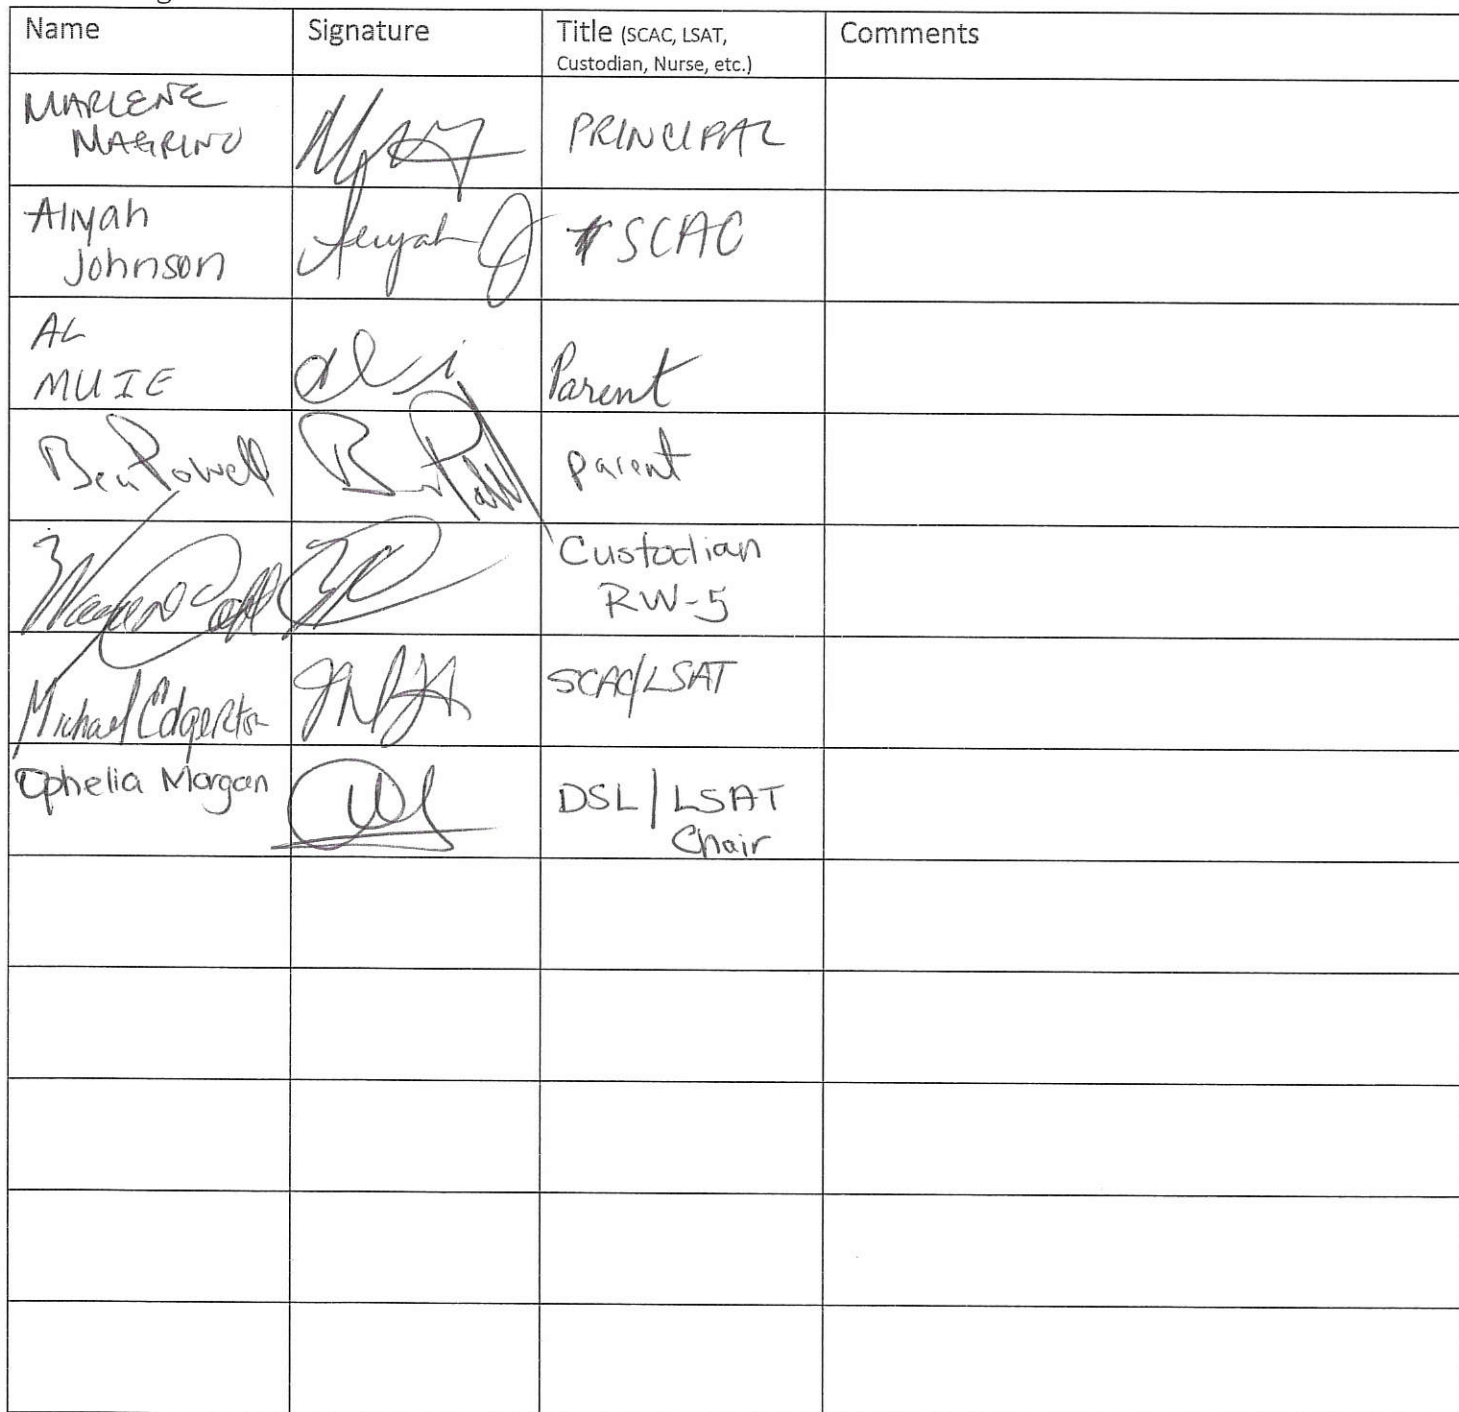 Name Signature Title (SCAC, LSAT, Comments
Custodian, Nurse, etc.)
MARLENE
MAGRINO PRINCIPAL
Aliyah
Johnson Aliyah J SCAC
AL
MUIE Parent
Ben Powell parent
Custodian
RW-5
Michael Edgerton SCAC/LSAT
Ophelia Morgan DSL/LSAT
Chair